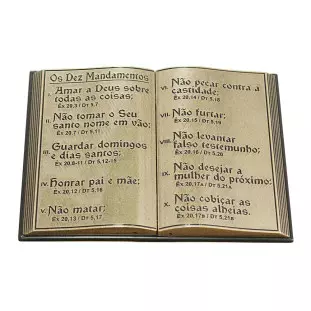 Os Dez Mandamentos
I. Amar a Deus sobre
todas as coisas;
Ex 20,3 / Dt 5,7
II. Não tomar o Seu
santo nome em vão;
Ex 20,7 / Dt 5,11
III. Guardar domingos
e dias santos;
Ex 20,8-11 / Dt 5,12-15
IV. Honrar pai e mãe;
Ex 20,12 / Dt 5,16
V. Não matar;
Ex 20,13 / Dt 5,17
VI. Não pecar contra a
castidade;
Ex 20,14 / Dt 5,18
VII. Não furtar;
Ex 20,15 / Dt 5,19
VIII. Não levantar
falso testemunho;
Ex 20,16 / Dt 5,20
IX. Não desejar a
mulher do próximo;
Ex 20,17a / Dt 5,21a
X. Não cobiçar as
coisas alheias.
Ex 20,17b / Dt 5,21b